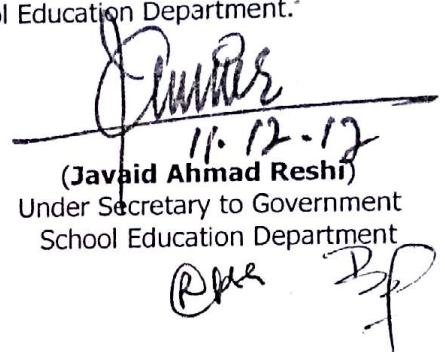 l Education Department.
11.12.17
(Javaid Ahmad Reshi)
Under Secretary to Government
School Education Department